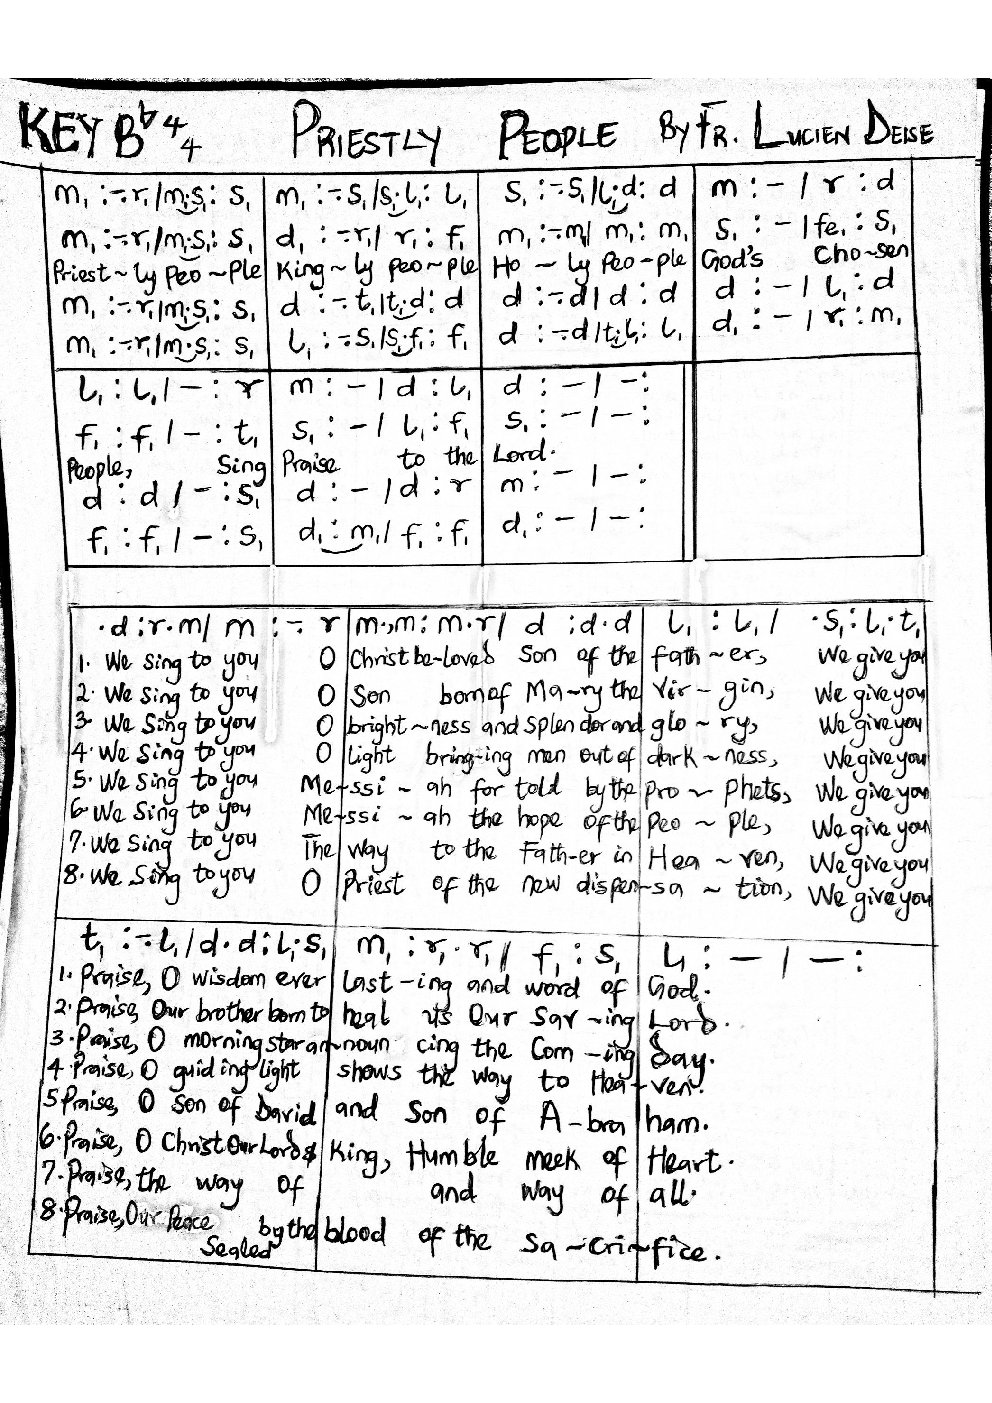 KEY B♭ 4/4 PRIESTLY PEOPLE BY FR. LUCIEN DEISE
m₁ :-.r₁/m₁.s₁: s₁ | m₁ :-.s₁/s₁.l₁: l₁ | s₁ :-.s₁/l₁.d: d | m : - / r : d
m₁ :-.r₁/m₁.s₁: s₁ | d₁ :-.r₁/ r₁ : f₁ | m₁ :-.m₁/ m₁ : m₁ | s₁ : - / fe₁ : s₁
Priest~ly Peo~ple King~ly Peo~ple Ho ~ ly Peo-ple God's Cho~sen
m₁ :-.r₁/m₁.s₁: s₁ | d :-.t₁/t₁.d: d | d :-.d/ d : d | d : - / l₁ : d
m₁ :-.r₁/m₁.s₁: s₁ | l₁ :-.s₁/s₁.f₁: f₁ | d :-.d/t₁.l₁: l₁ | d₁ : - / r₁ : m₁
l₁ : l₁ / - : r | m : - / d : l₁ | d : - / - :
f₁ : f₁ / - : t₁ | s₁ : - / l₁ : f₁ | s₁ : - / - :
People, Sing Praise to the Lord.
d : d / - : s₁ | d : - / d : r | m : - / - :
f₁ : f₁ / - : s₁ | d₁ : m₁ / f₁ : f₁ | d₁ : - / - :
.d :r.m/ m :-. r | m.,m: m.r/ d :d.d | l₁ : l₁ / .s₁: l₁.t₁
1. We sing to you O Christ be-loved Son of the fath~er, We give you
2. We sing to you O Son born of Ma~ry the Vir-gin, We give you
3. We sing to you O bright~ness and splendor and glo~ry, We give you
4. We sing to you O light bring-ing men out of dark~ness, We give you
5. We sing to you Me-ssi~ah for told by the pro~phets, We give you
6. We sing to you Me-ssi~ah the hope of the Peo~ple, We give you
7. We sing to you The way to the Fath-er in Hea~ven, We give you
8. We sing to you O Priest of the new dispen-sa~tion, We give you
t₁ :-.l₁/d.d:l₁.s₁ | m₁ : r₁.r₁/ f₁ : s₁ | l₁ : - / - :
1. Praise, O wisdom ever last-ing and word of God.
2. Praise, Our brother born to heal us Our Sav-ing Lord.
3. Praise, O morning star an~noun cing the Com-ing day.
4 Praise, O guiding light shows the way to Hea-ven.
5 Praise, O Son of David and Son of A-bra ham.
6. Praise, O Christ Our Lord & King, Humble meek of Heart.
7. Praise, the way of and way of all.
8. Praise, Our Peace Sealed by the blood of the Sa~cri~fice.